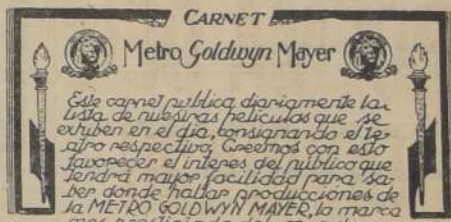 CARNET
Metro Goldwyn Mayer
Este carnet publica diariamente la
lista de nuestras películas que se
exhiben en el día, consignando el te-
atro respectivo, Creemos con esto
favorecer el interes del público que
tendrá mayor facilidad para sa-
ber donde hallar producciones de
la METRO GOLDWYN MAYER, la marca